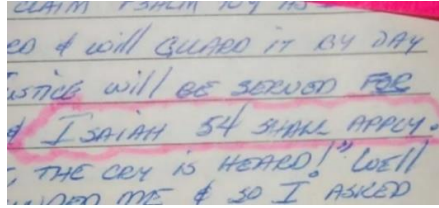 CLAIM PSALM 109 AS
ED & will GUARD IT BY DAY
USTICE will BE SERVED FOR
& ISAIAH 54 SHALL APPLY.
, THE CRY IS HEARD!" WELL
ME & SO I ASKED